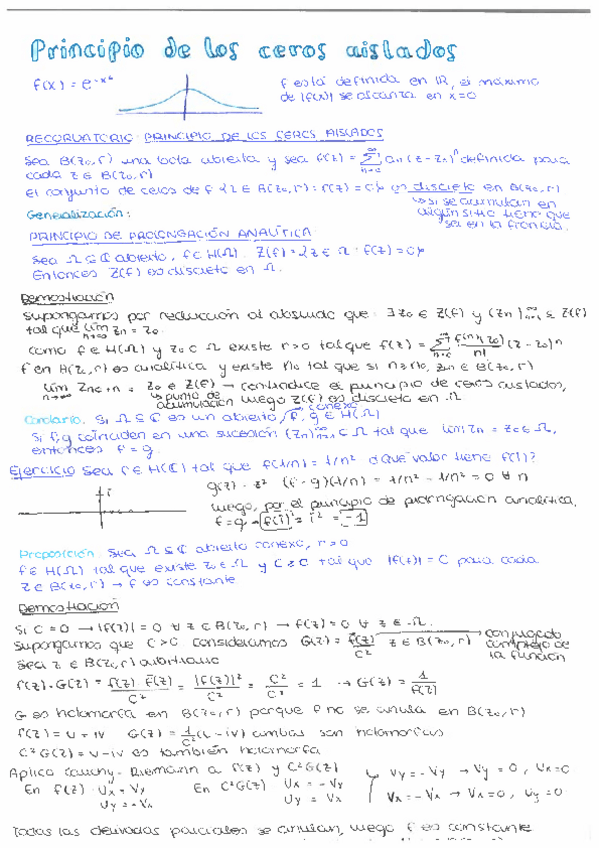 Principio de los ceros aislados
f(x) = e^-x² f está definida en ℝ, el máximo
de |f(x)| se alcanza en x=0
RECORDATORIO: PRINCIPIO DE LOS CEROS AISLADOS
Sea B(z₀,r) una bola abierta y sea f(z) = Σ aₙ(z-z₀)ⁿ definida para
cada z ∈ B(z₀,r)
El conjunto de ceros de f {z ∈ B(z₀,r) : f(z) = 0} es discreto en B(z₀,r)
si se acumulan en
algún sitio tiene que
ser en la frontera.
Generalización:
PRINCIPIO DE PROLONGACIÓN ANALÍTICA
Sea Ω ⊆ ℂ abierto, f ∈ H(Ω). Z(f) = {z ∈ Ω : f(z) = 0}
Entonces Z(f) es discreto en Ω.
Demostración
Supongamos por reducción al absurdo que ∃ z₀ ∈ Z(f) y (zₙ)ₙ₌₁^∞ ⊆ Z(f)
tal que lim zₙ = z₀
n→∞
Como f ∈ H(Ω) y z₀ ∈ Ω existe r>0 tal que f(z) = Σ f⁽ⁿ⁾(z₀)/n! (z-z₀)ⁿ
f en H(z₀,r) es analítica y existe n₀ tal que si n≥n₀, zₙ ∈ B(z₀,r)
lim zn₀+n = z₀ ∈ Z(f) → contradice el principio de ceros aislados,
n→∞ punto de
acumulación luego Z(f) es discreto en Ω
Corolario. Si Ω ⊆ ℂ es un abierto, conexo f, g ∈ H(Ω)
Si f, g coinciden en una sucesión (zₙ)ₙ₌₁^∞ ⊂ Ω tal que lim zₙ = z₀ ∈ Ω,
entonces f = g.
Ejercicio Sea f ∈ H(ℂ) tal que f(1/n) = 1/n² ¿Que valor tiene f(i)?
g(z) = z² (f-g)(1/n) = 1/n² - 1/n² = 0 ∀ n
luego, por el principio de prolongación analítica,
f = g → f(i) = i² = -1
Proposición. Sea Ω ⊆ ℂ abierto conexo, r > 0
f ∈ H(Ω) tal que existe z₀ ∈ Ω y C ≥ 0 tal que |f(z)| = C para cada
z ∈ B(z₀,r) → f es constante
Demostración
Si C = 0 → |f(z)| = 0 ∀ z ∈ B(z₀,r) → f(z) = 0 ∀ z ∈ Ω.
Supongamos que C > 0 consideramos G(z) = f̅(z)/C² z ∈ B(z₀,r) → conjugado
complejo de
la función
Sea z ∈ B(z₀,r) arbitrario
f(z)·G(z) = f(z) f̅(z)/C² = |f(z)|²/C² = C²/C² = 1 → G(z) = 1/f(z)
G es holomorfa en B(z₀,r) porque f no se anula en B(z₀,r)
f(z) = u + iv G(z) = 1/C² (u - iv) ambas son holomorfas
C²G(z) = u - iv es también holomorfa
Aplico Cauchy-Riemann a f(z) y C²G(z)
En f(z) · Ux = Vy En C²G(z) Ux = -Vy Vy = -Vy → Vy = 0, Ux = 0
Uy = -Vx Uy = Vx Vx = -Vx → Vx = 0, Uy = 0
Todas las derivadas parciales se anulan, luego f es constante